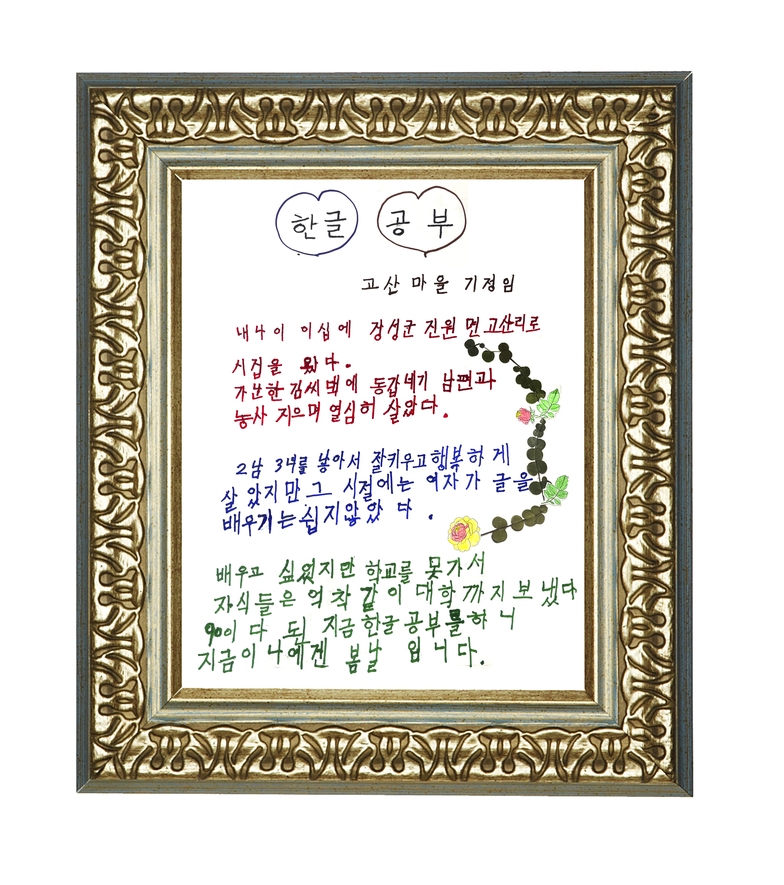 한글 공부
고산 마을 기정임
내 나이 이십에 장성군 진원면 고산리로
시집을 왔다.
가난한 김씨댁에 동갑내기 남편과
농사 지으며 열심히 살았다.
2남 3녀를 낳아서 잘키우고 행복하게
살았지만 그 시절에는 여자가 글을
배우기는 쉽지않았다.
배우고 싶었지만 학교를 못가서
자식들은 억착같이 대학까지 보냈다
90이 다 된 지금 한글공부를 하니
지금이 나에겐 봄날 입니다.